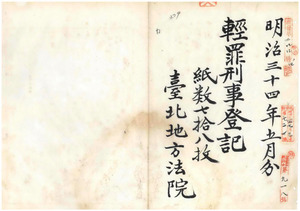 明治三十四年五月分
輕罪刑事登記
紙数七拾八枚
臺北地方法院